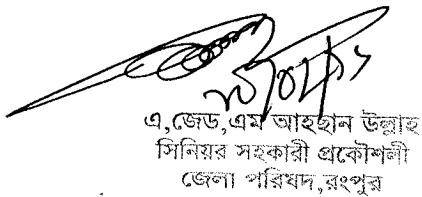 এ,জেড,এম আহছান উল্লাহ
সিনিয়র সহকারী প্রকৌশলী
জেলা পরিষদ,রংপুর